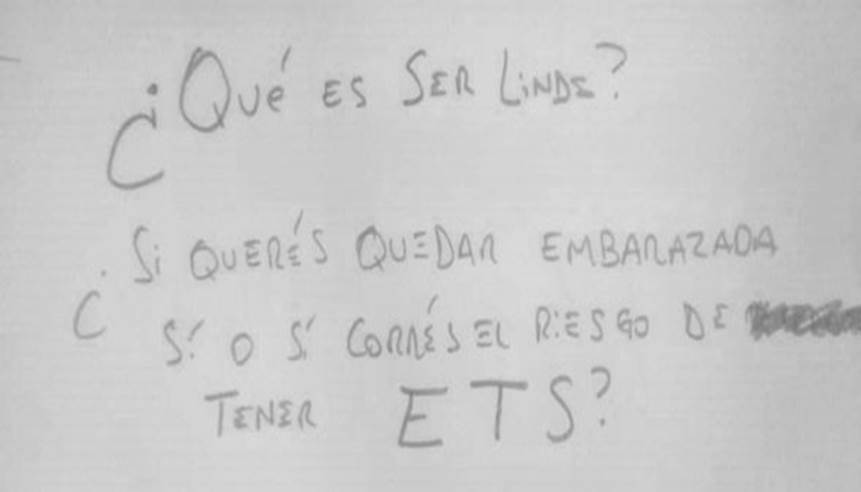 ¿Qué es SER LiNDE?
¿Si QUERÉS QUEDAR EMBARAZADA
SÍ O SÍ CORRÉS EL RIESGO DE
TENER ETS?